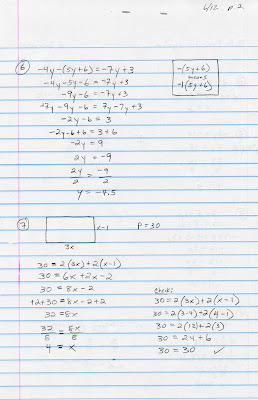 6/12 p. 2
⑥ -4y-(5y+6)=-7y+3
-(5y+6)
means
-1(5y+6)
-4y-5y-6 = -7y+3
-9y-6 = -7y+3
+7y-9y-6 = 7y-7y+3
-2y-6 = 3
-2y-6+6 = 3+6
-2y = 9
2y = -9
2y/2 = -9/2
y = -4.5
⑦ x-1 P=30
3x
30 = 2(3x)+2(x-1)
30 = 6x+2x-2
30 = 8x-2
+2+30 = 8x-2+2
32 = 8x
32/8 = 8x/8
4 = x
Check:
30 = 2(3x)+2(x-1)
30 = 2(3·4)+2(4-1)
30 = 2(12)+2(3)
30 = 24+6
30 = 30 ✓